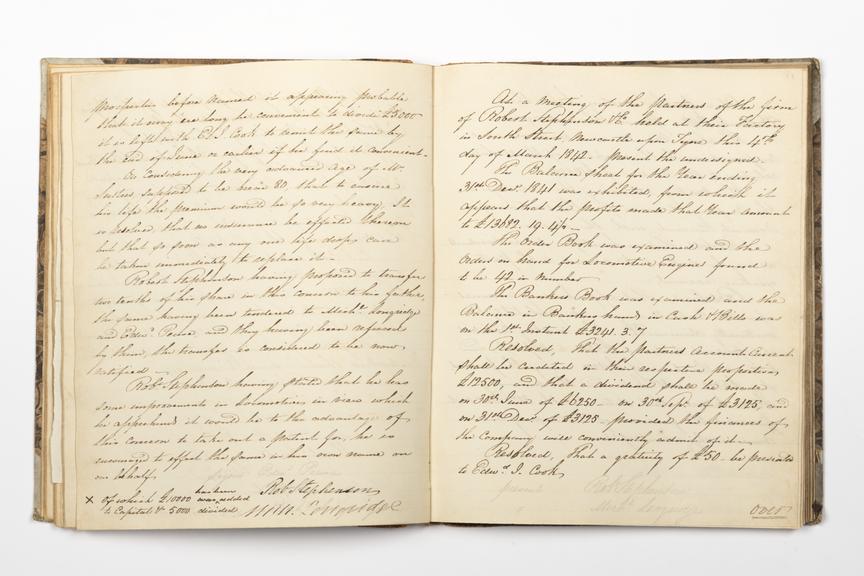 before named it appearing probable
that it may ere long be convenient to divide £5000
it is left with E. J. Cook to remit the same by
the 2nd of June or earlier if he find it convenient.
On Considering the very advanced age of Mr.
supposed to be near 80, that to ensure
his life the premium would be so very heavy, It
is resolved that no insurance be effected thereon
but that so soon as any one life drops care
be taken immediately to replace it —
Robert Stephenson having proposed to transfer
two tenths of his share in this concern to his father,
the same having been tendered to Michl. Longridge
and Edwd. Pease, and they having been refused
by them, the transfer is considered to be now
ratified —
Robt. Stephenson having stated that he has
some improvements in locomotives in view which
he apprehends it would be to the advantage of
this concern to take out a patent for, he is
encouraged to effect the same in his own name on
our behalf,
x of which £10000 has been added
to Capital & 5000 divided
Robt Stephenson
Mich. Longridge
At a meeting of the partners of the firm
of Robert Stephenson & Co. held at their Factory
in South Street Newcastle upon Tyne this 4th
day of March 1842. Present the undersigned.
The Balance Sheet for the Year ending
31st Decr. 1841 was exhibited, from which it
appears that the profits made that Year amount
to £13682. 19. 4½ —
The Order Book was examined and the
Orders in hand for Locomotive Engines found
to be 42 in number
The Bankers Book was examined and the
Balance in Banking hands in Cash & Bills was
on the 1st Instant £3241. 3. 7
Resolved, That the partners Account Current
shall be credited in their respective proportions
£12500, and that a dividend shall be made
on 30th June of £6250 — on 30th Sepr. of £3125, and
on 31st Decr. of £3125 — provided the finances of
the Company will conveniently admit of it —
Resolved, That a gratuity of £50 — be presented
to Edwd. J. Cook,
Robt Stephenson
Michl. Longridge
Over